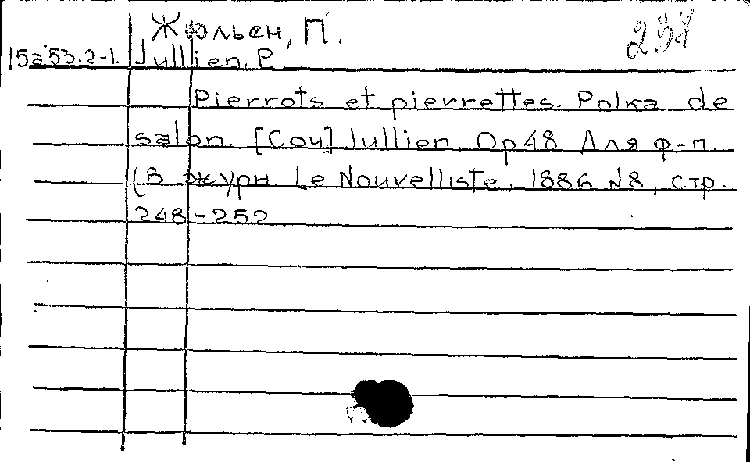 Жюльен, П.
15a53.2-1. Jullien, P.
Pierrots et pierrettes. Polka de
salon. [Соч] Jullien. Op 48. Для ф-п.
(В журн. Le Nouvelliste, 1886 N8, стр.
248-252